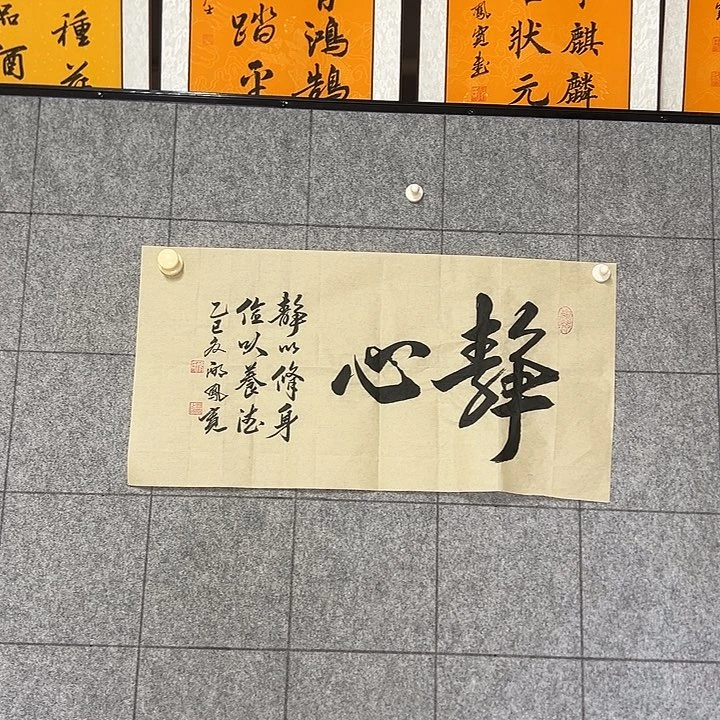 靜心
靜以修身
儉以養德
乙巳夏郝鳳寬
麒麟
狀元
鳳寬書
鴻鵠
踏平
種花
酒